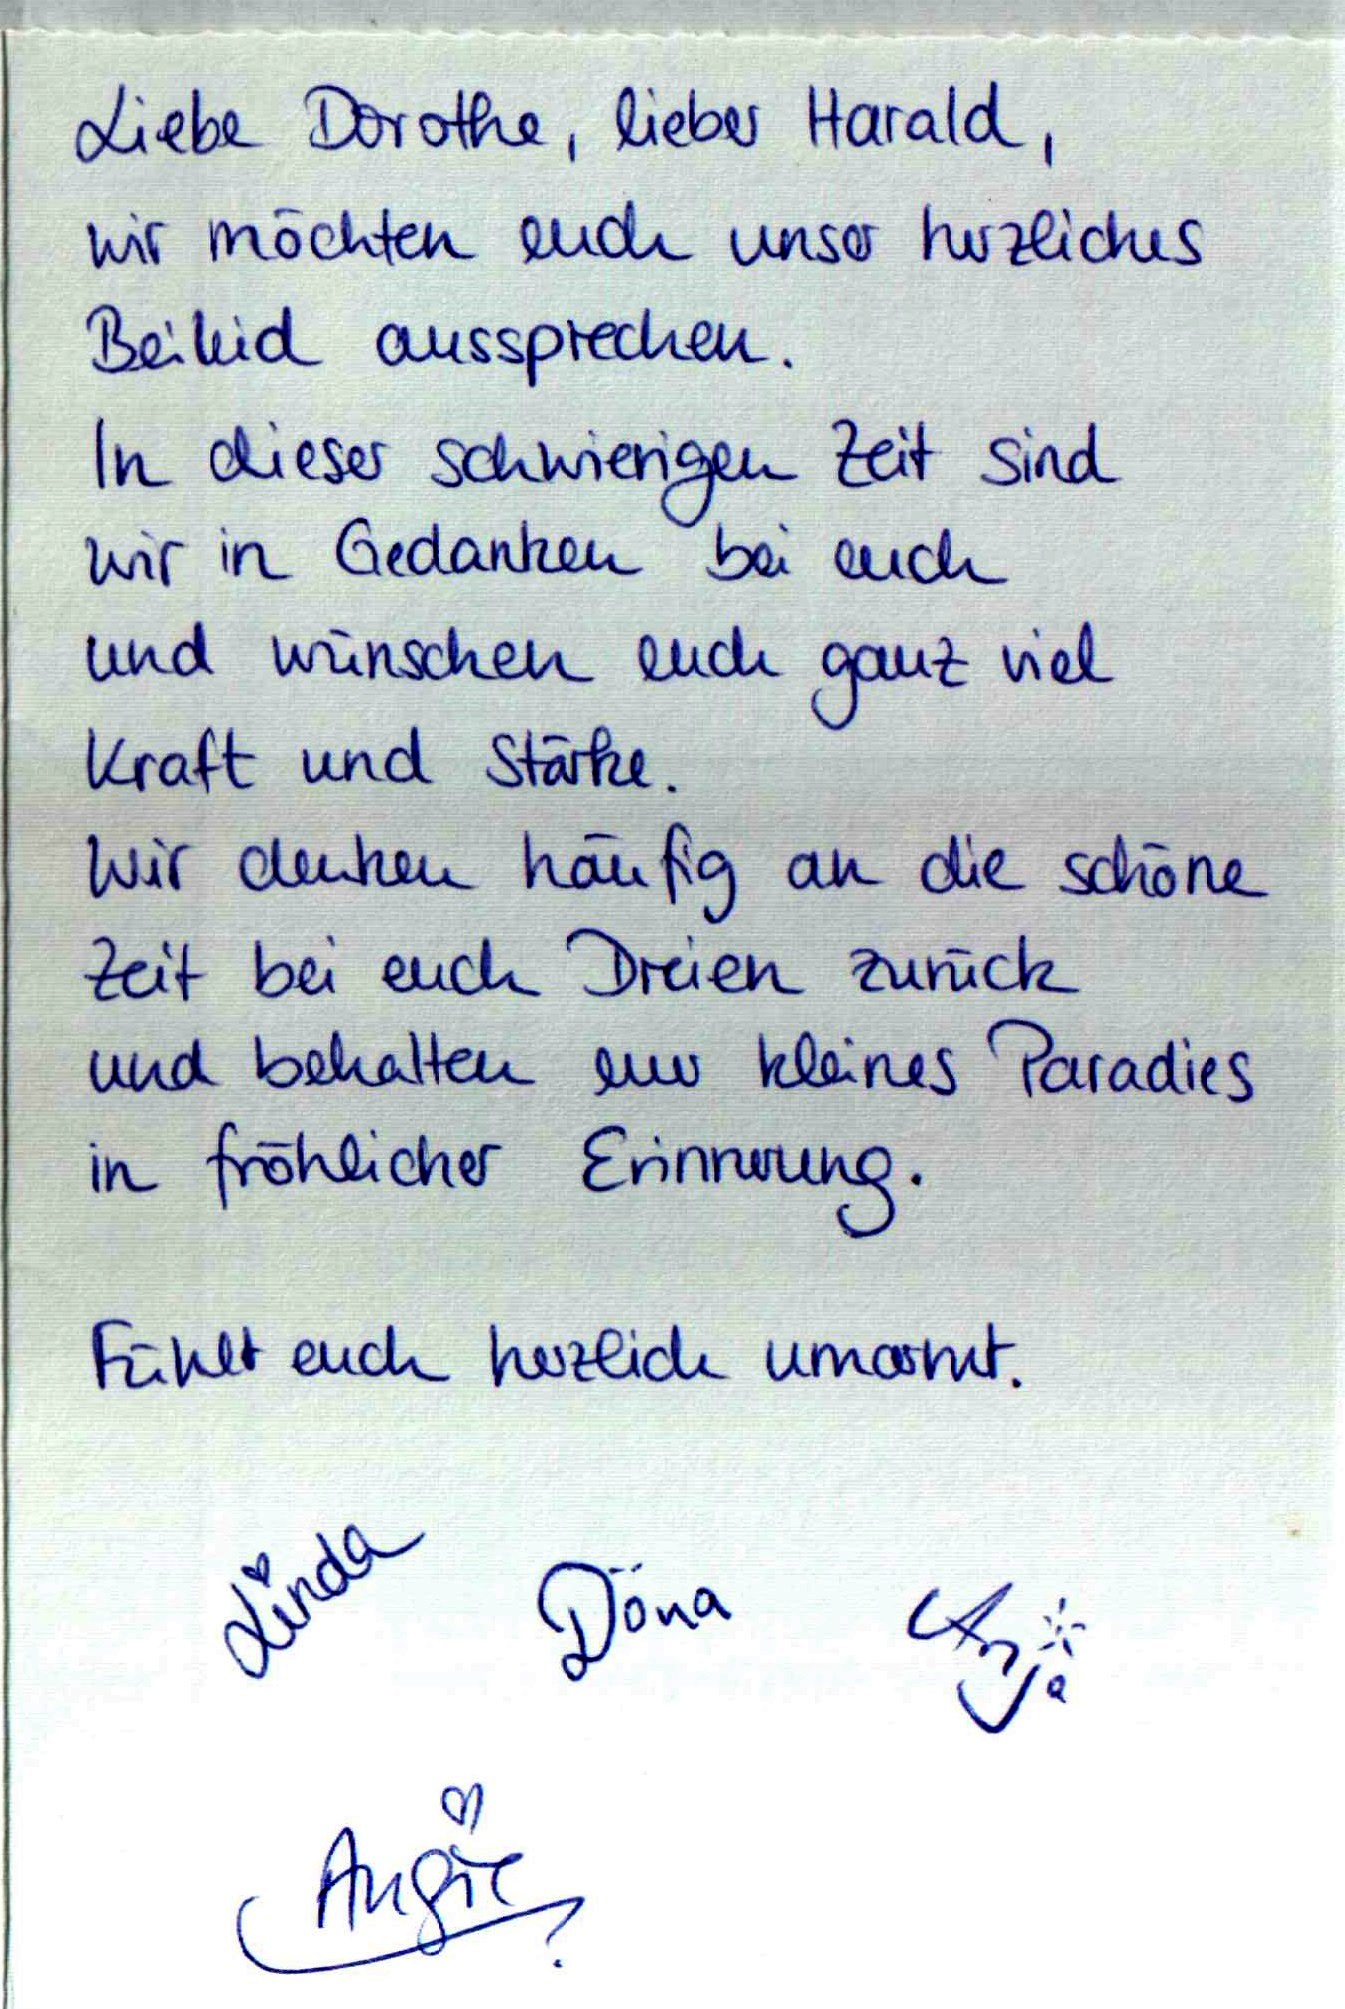 Liebe Dorothe, lieber Harald,
wir möchten euch unser herzliches
Beileid aussprechen.
In dieser schwierigen Zeit sind
wir in Gedanken bei euch
und wünschen euch ganz viel
Kraft und Stärke.
Wir denken häufig an die schöne
Zeit bei euch Dreien zurück
und behalten euer kleines Paradies
in fröhlicher Erinnerung.
Fühlt euch herzlich umarmt.
Linda Döna Anja
Angie